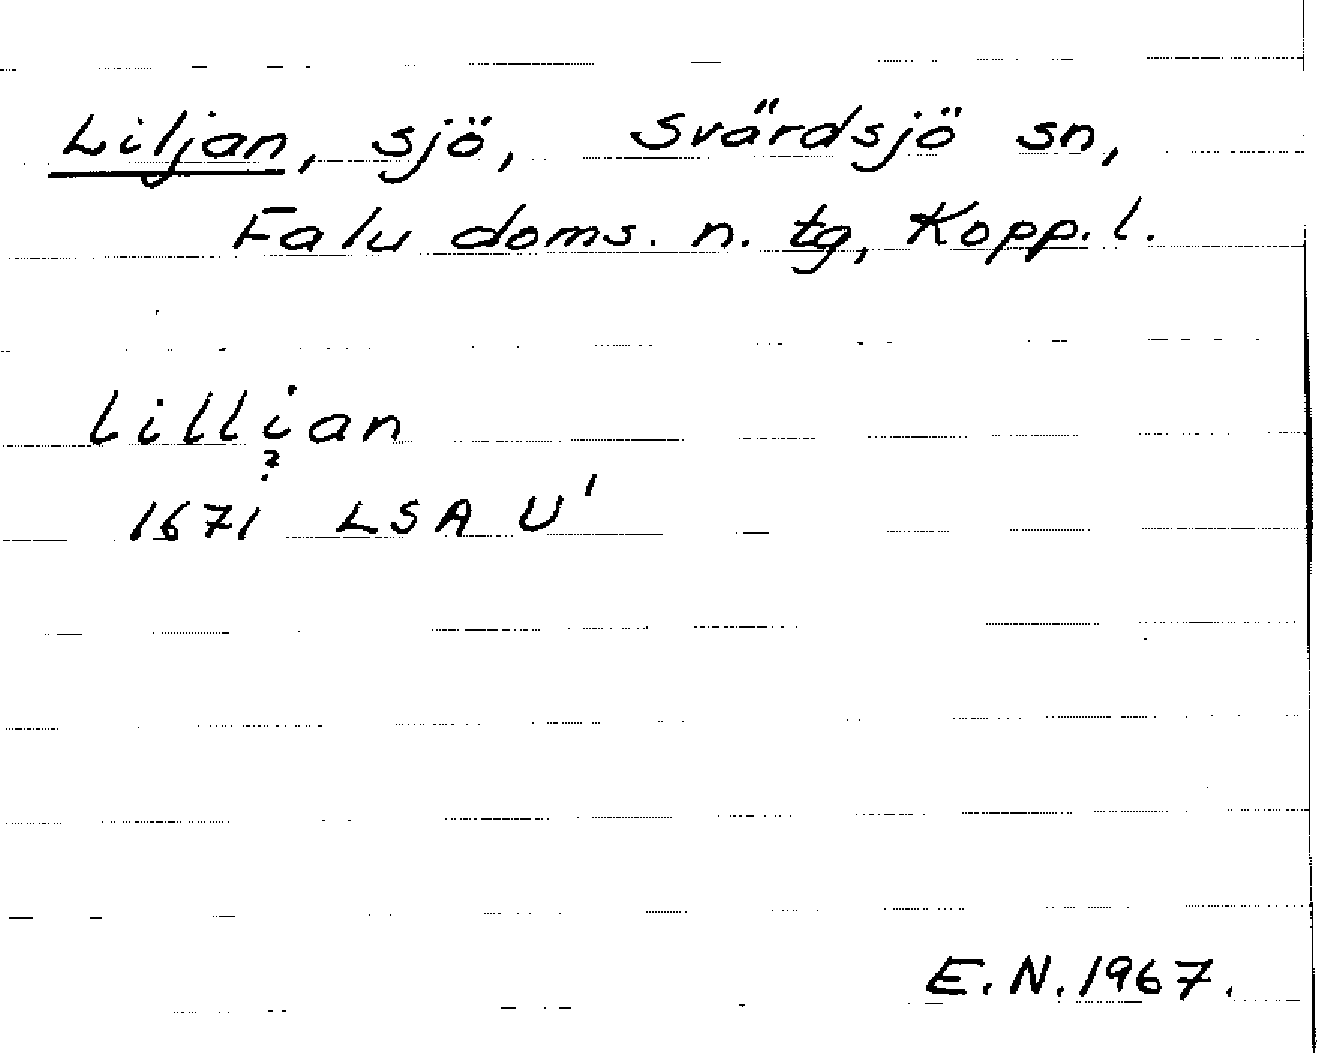 Liljan, sjö, Svärdsjö sn,
Falu doms. n. tg, Kopp. l.
Lillian
?
1671 LSA U'
E. N. 1967.